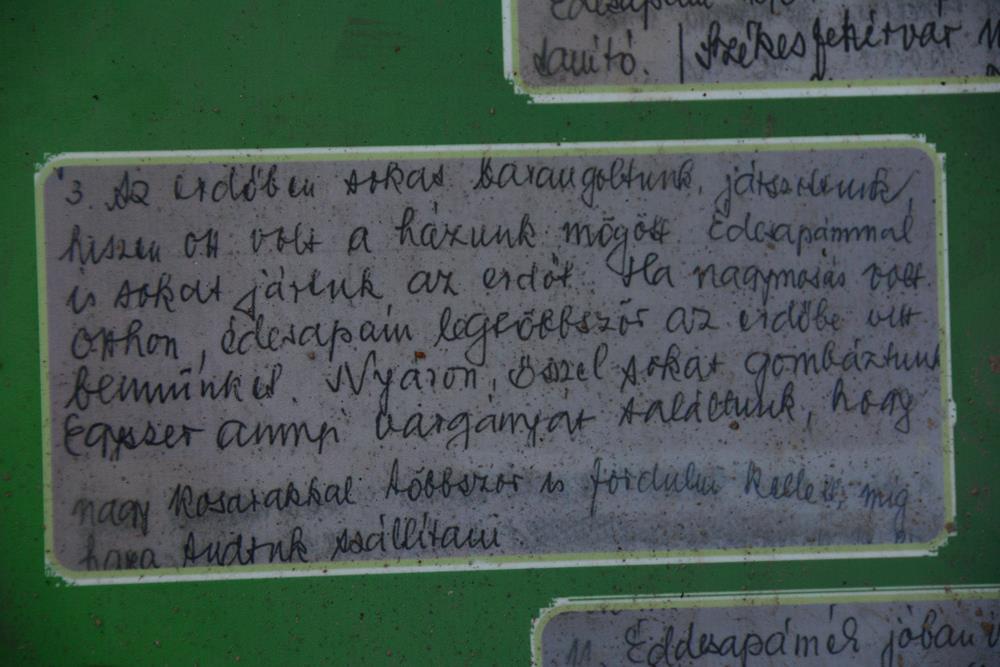 Édesapám
tanító. | Székesfehérvár
3. Az erdőben sokat barangoltunk, játszottunk,
hiszen ott volt a házunk mögött. Édesapámmal
is sokat jártuk az erdőt. Ha nagymosás volt
otthon, édesapám legtöbbször az erdőbe vitt
bennünket. Nyáron, ősszel sokat gombáztunk
Egyszer annyi vargányát találtunk, hogy
nagy kosarakkal többször is fordulni kellett, míg
haza tudtuk szállítani
11. Éddesapámék jóban